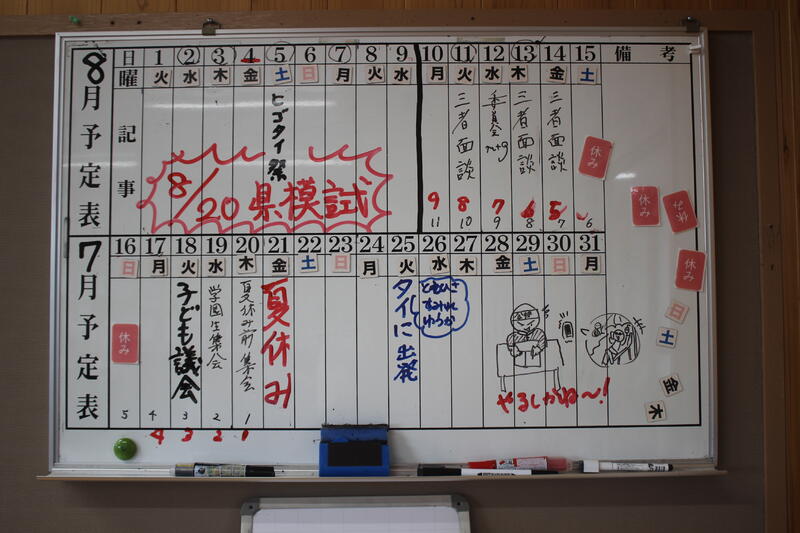 8月予定表
日 1 2 3 4 5 6 7 8 9 10 11 12 13 14 15 備考
曜 火 水 木 金 土 日 月 火 水 月 火 水 木 金 土
記事
ヒゴタイ祭
8/20県模試
三者面談
委員会
三者面談
三者面談
休み
9 8 7 6 5
11 10 9 8 7 6
休み
休み
休み
7月予定表
16 17 18 19 20 21 22 23 24 25 26 27 28 29 30 31
日 月 火 水 木 金 土 日 月 火 水 木 金 土 日 月
休み
子ども議会
学園生集会
夏休み前集会
夏休み
タイに出発
やるしかね〜!
5 4 3 2 1
4 3 2 1
日
土
金
木